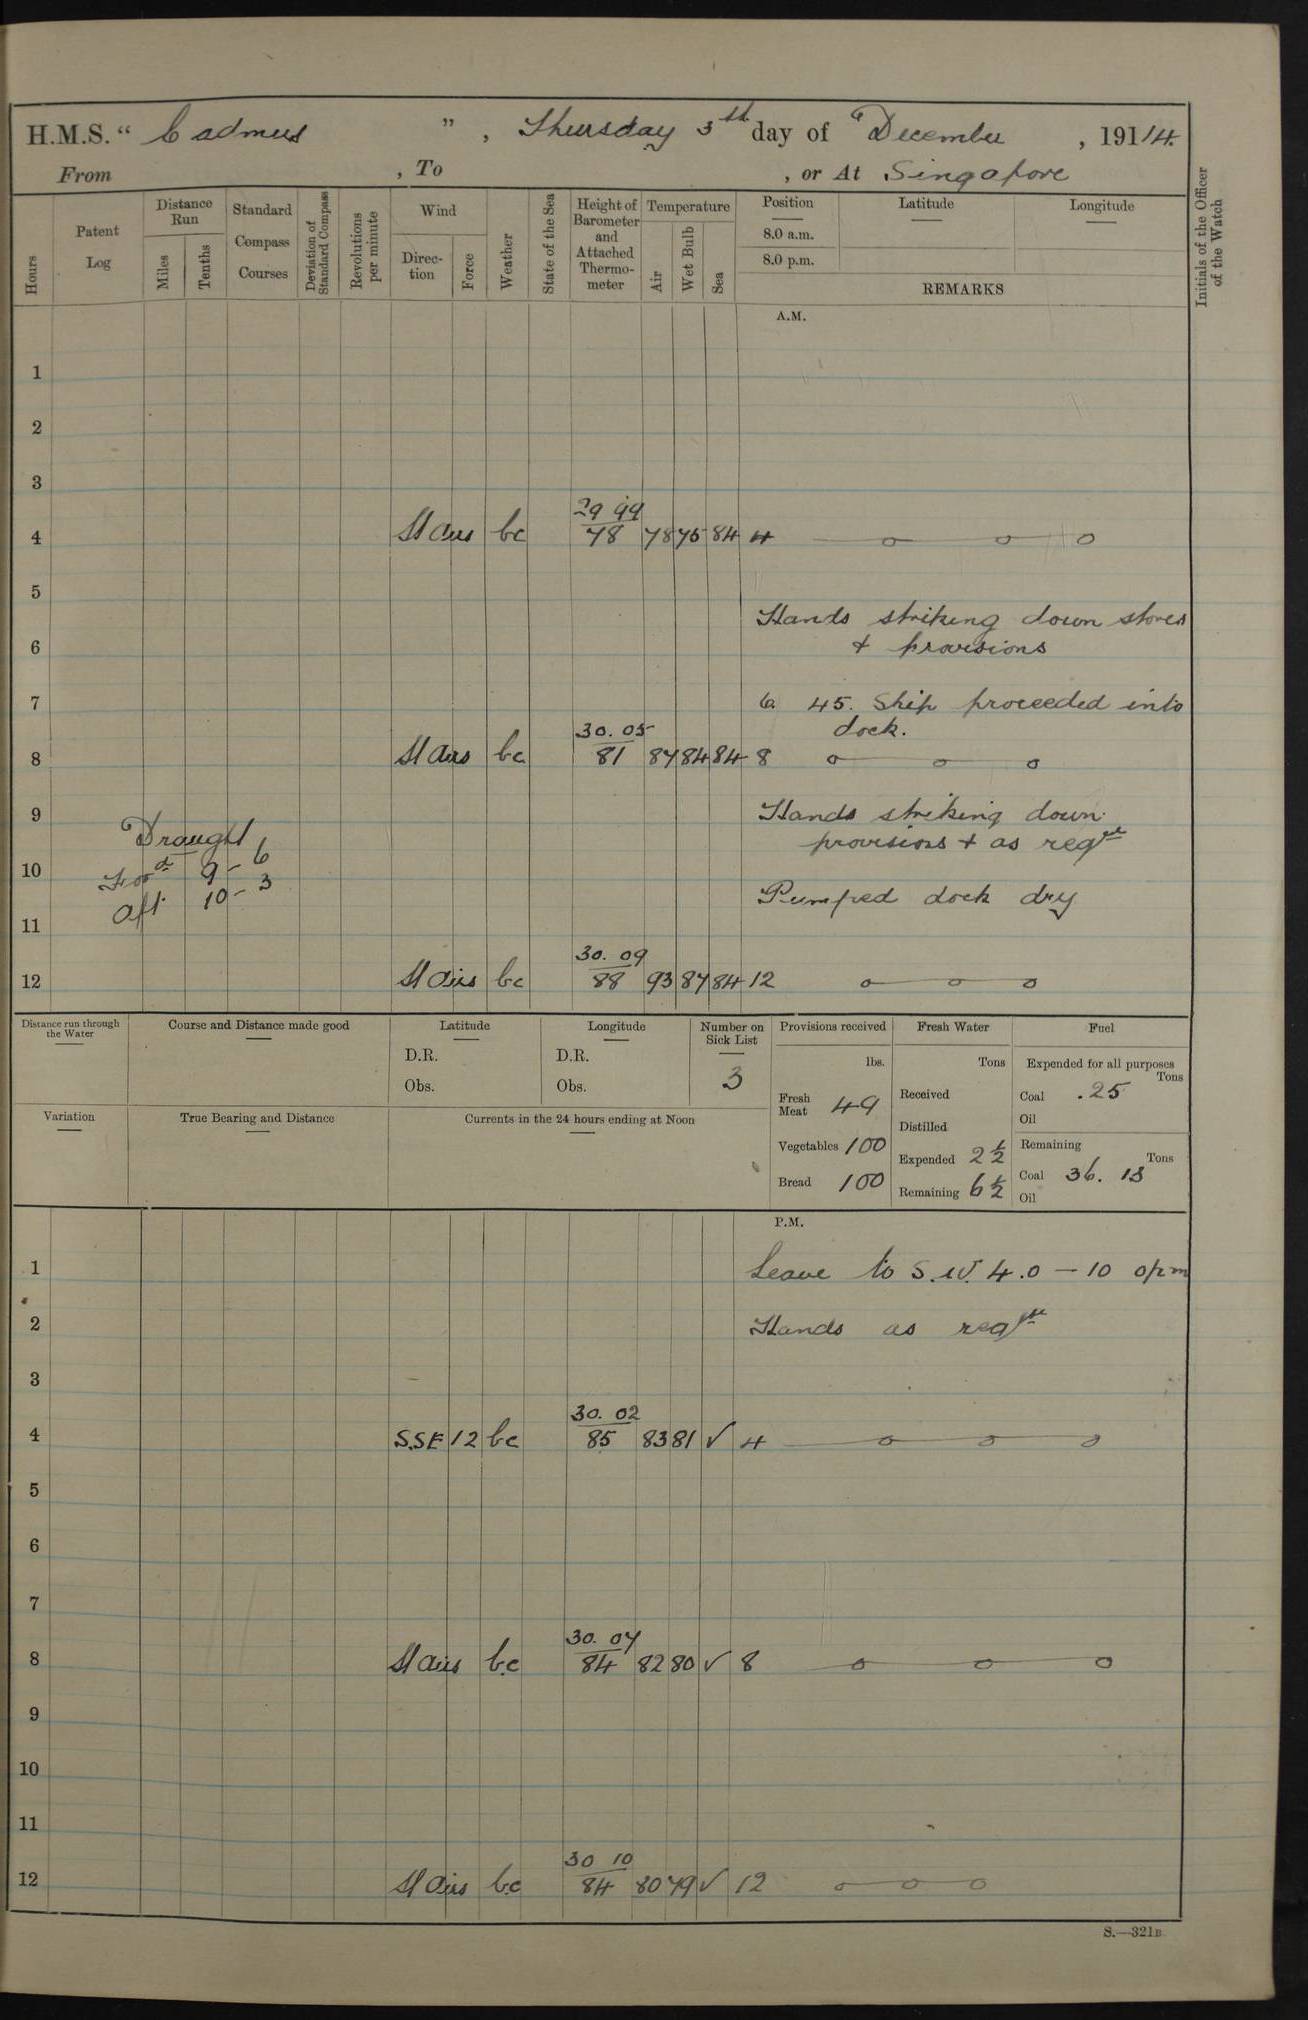 H.M.S. “ Cadmus ” , Thursday 3th day of December , 19114.
From , To , or At Singapore
Hours
Patent Log
Distance Run
Miles
Tenths
Standard Compass Courses
Deviation of Standard Compass
Revolutions per minute
Wind
Direction
Force
Weather
State of the Sea
Height of Barometer and Attached Thermometer
Temperature
Air
Wet Bulb
Sea
Position
8.0 a.m.
8.0 p.m.
Latitude
Longitude
REMARKS
Initials of the Officer of the Watch
A.M.
1
2
3
29 99
4 Lt Airs bc 78 78 75 84 4
5
Hands striking down stores
6 & provisions
7 6 45. Ship proceeded into
30. 05 dock.
8 Lt Airs bc 81 87 84 84 8
9 Hands striking down
Draught provisions & as reqd
10 Ford 9 - 6
Aft 10 - 3 Pumped dock dry
11
30. 09
12 Lt Airs bc 88 93 87 84 12
Distance run through the Water
Course and Distance made good
Latitude
D.R.
Obs.
Longitude
D.R.
Obs.
Number on Sick List
3
Provisions received
lbs.
Fresh Meat 49
Vegetables 100
Bread 100
Fresh Water
Tons
Received
Distilled
Expended 2½
Remaining 6½
Fuel
Expended for all purposes
Tons
Coal .25
Oil
Remaining
Tons
Coal 36. 13
Oil
Variation
True Bearing and Distance
Currents in the 24 hours ending at Noon
P.M.
1 Leave to S.W. 4.0 — 10 0pm
2 Hands as reqd
3
30. 02
4 S.S.E 12 bc 85 83 81 ✓ 4
5
6
7
30. 07
8 Lt Airs b.c 84 82 80 ✓ 8
9
10
11
30 10
12 Lt Airs b.c 84 80 79 ✓ 12
S.—321B.